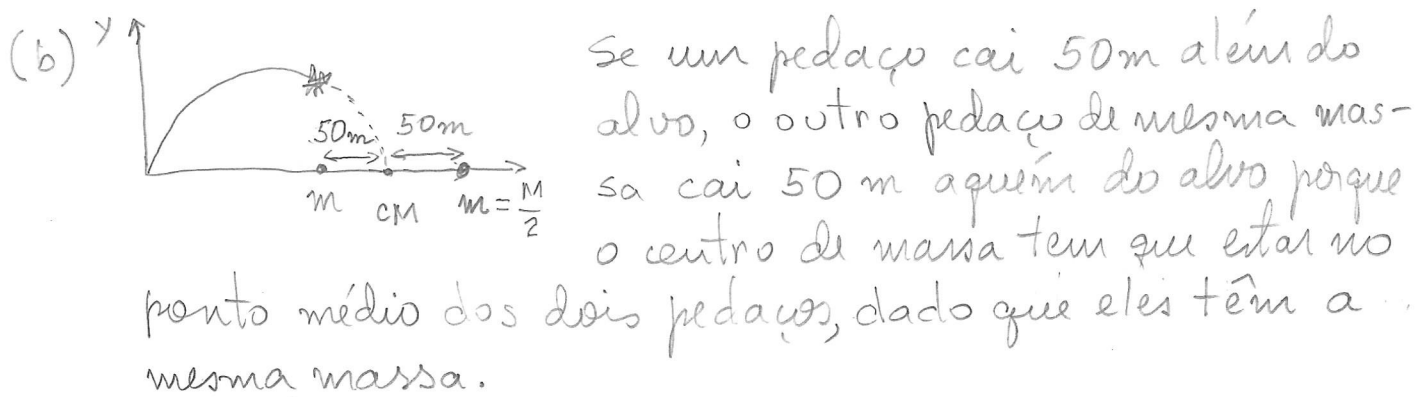 (b) y
50m 50m
m CM m = M/2
Se um pedaço cai 50m além do
alvo, o outro pedaço de mesma mas-
sa cai 50 m aquém do alvo porque
o centro de massa tem que estar no
ponto médio dos dois pedaços, dado que eles têm a
mesma massa.